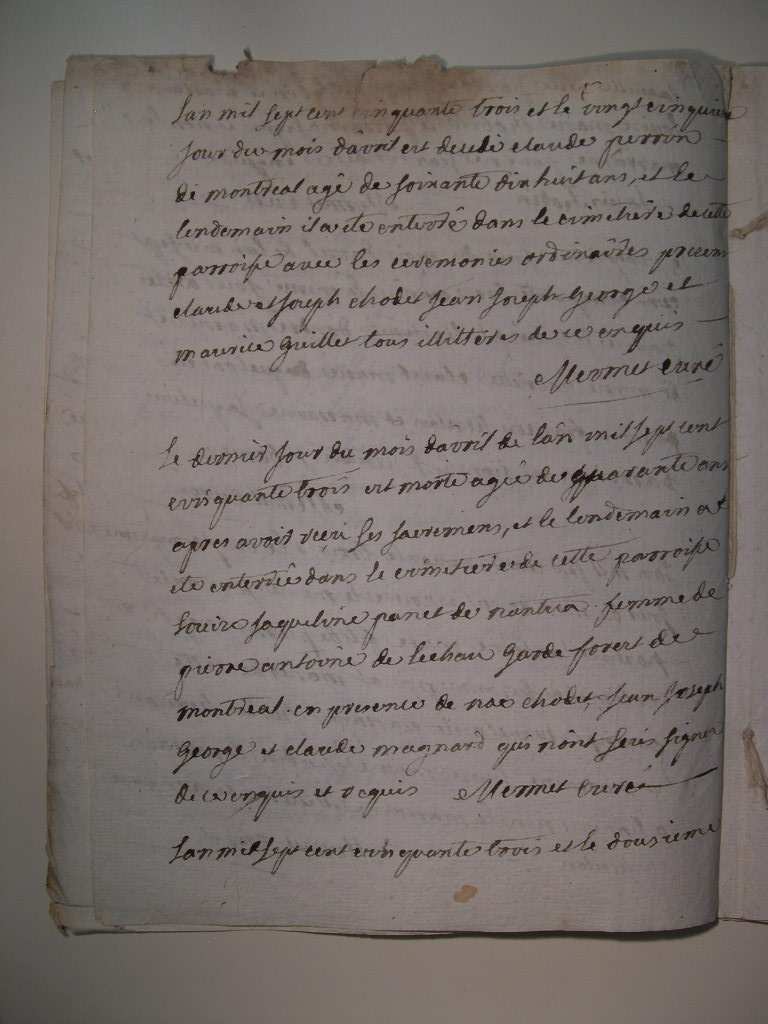 Lan mil sept cent cinquante trois et le vingt cinquieme
jour du mois d'avril est decedé claude perrin
de montreal agé de soixante dix huit ans, et le
lendemain il a ete enterré dans le cimetiére de cette
parroisse avec les ceremonies ordinaires presens
claude et joseph chodet jean joseph george et
maurice Guillet tous illitteres de ce enquis
Mermet curé
Le dernier jour du mois d'avril de l'an mil sept cent
cinquante trois est morte agée de quarante ans
apres avoir reçu ses sacremens, et le lendemain at
ete enterrée dans le cimetiere de cette parroisse
Louise jaqueline panet de nantua femme de
pierre antoine de léchau Garde foret de
montreal en presence de chodet, jean joseph
George et claude magnard qui n'ont seus signer
de ce enquis et requis Mermet curé
Lan mil sept cent cinquante trois et le dousieme